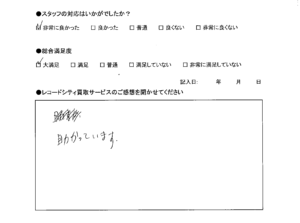 ●スタッフの対応はいかがでしたか？
☑ 非常に良かった □ 良かった □ 普通 □ 良くない □ 非常に良くない
●総合満足度
☑ 大満足 □ 満足 □ 普通 □ 満足していない □ 非常に満足していない
記入日: 年 月 日
●レコードシティ買取サービスのご感想を聞かせてください
助かっています。